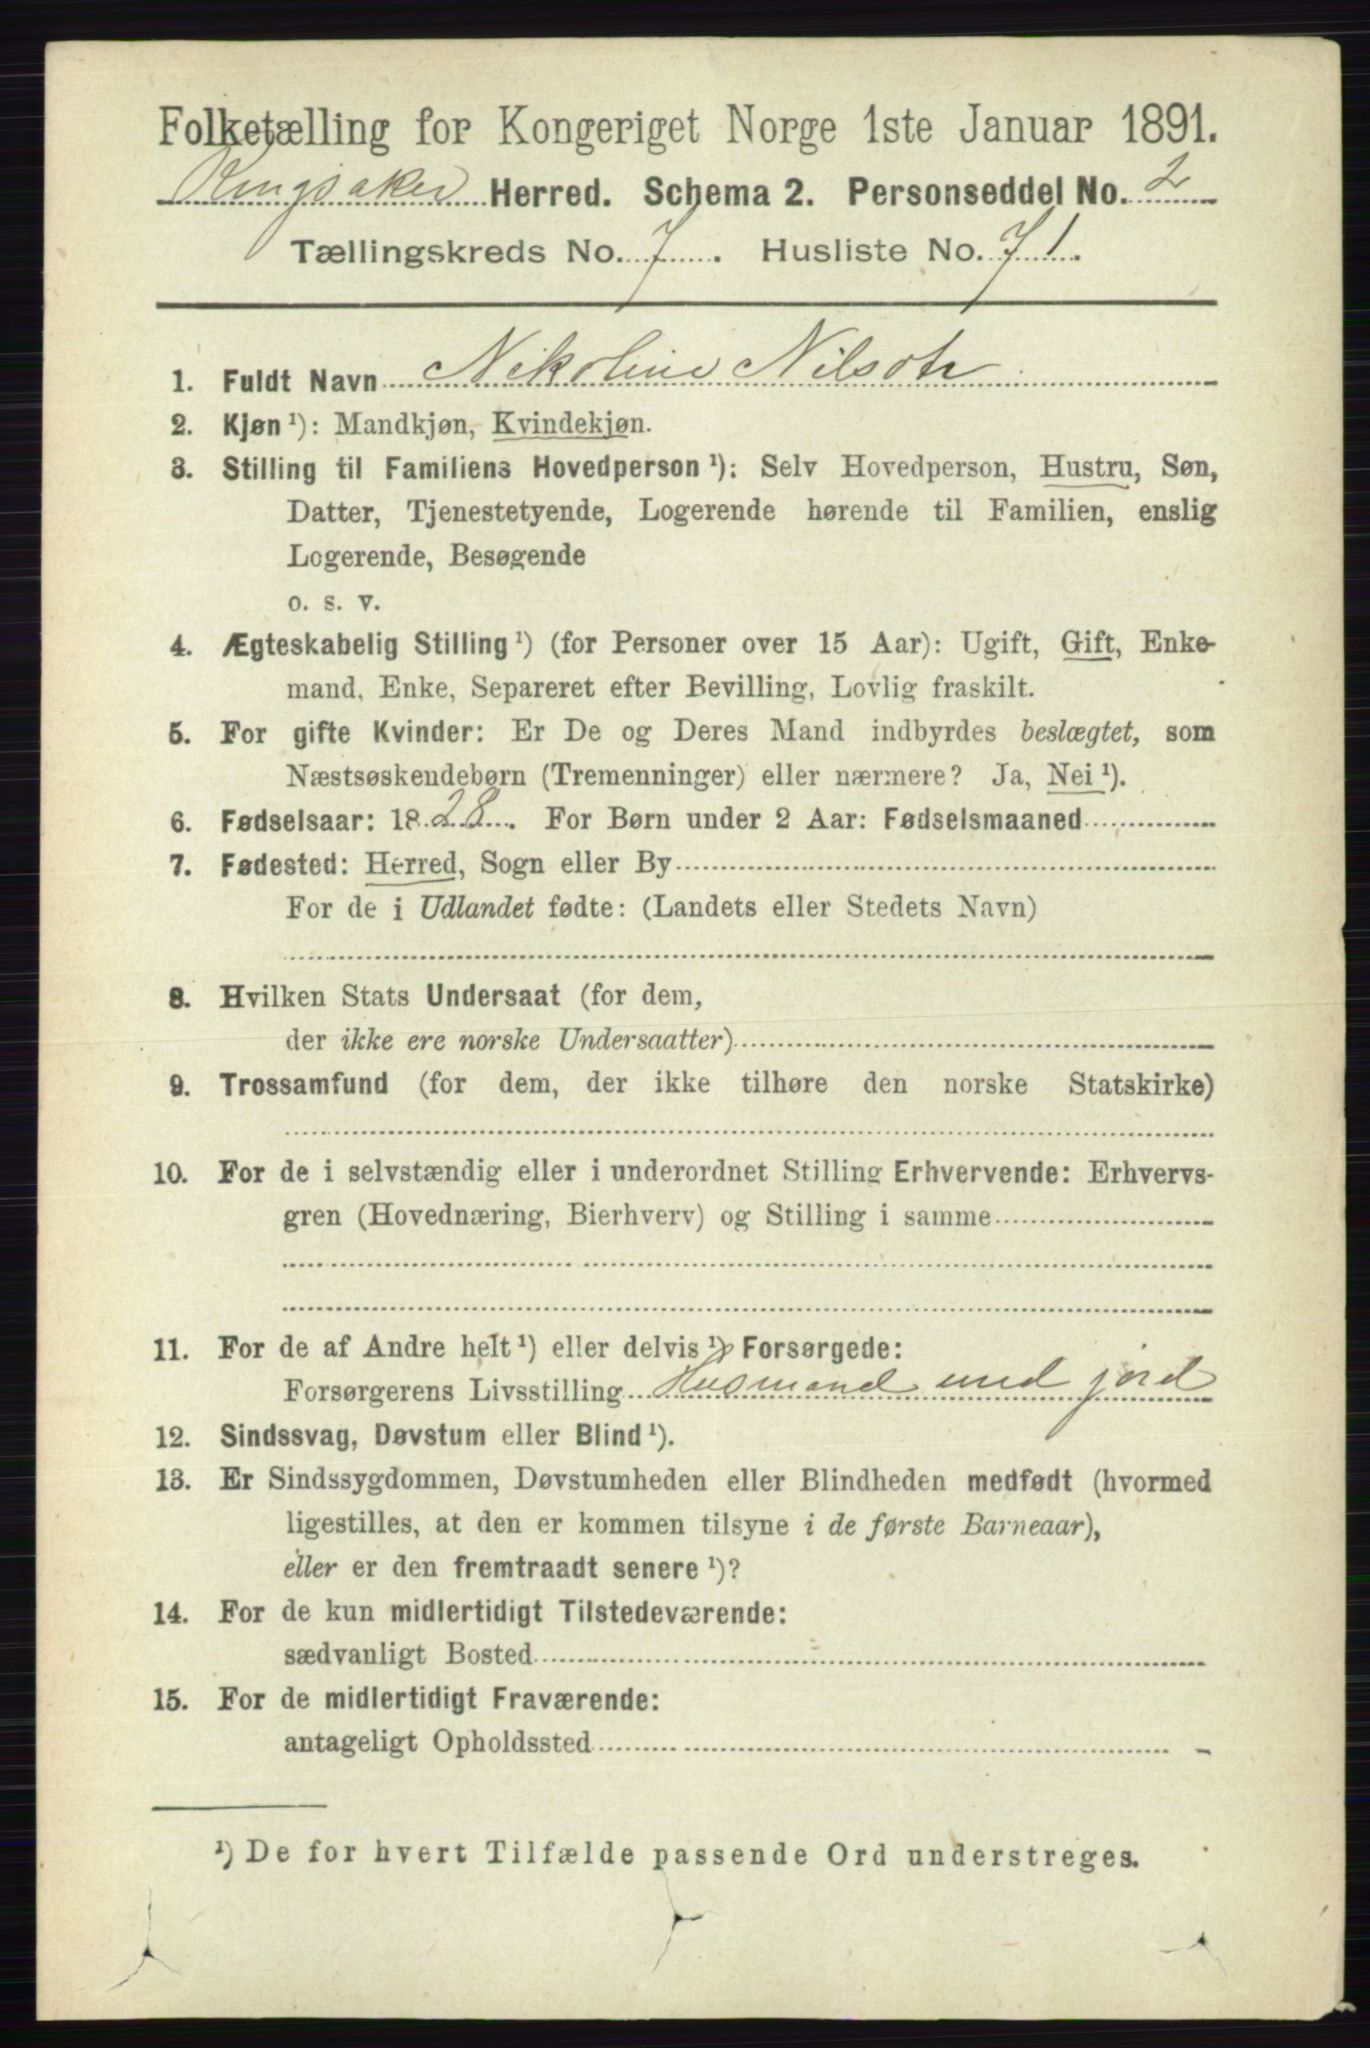 Folketælling for Kongeriget Norge 1ste Januar 1891.
Ringsaker Herred. Schema 2. Personseddel No. 2
Tællingskreds No. 7. Husliste No. 71.
1. Fuldt Navn Nikoline Nilsdtr
2. Kjøn ¹): Mandkjøn, Kvindekjøn.
3. Stilling til Familiens Hovedperson ¹): Selv Hovedperson, Hustru, Søn,
Datter, Tjenestetyende, Logerende hørende til Familien, enslig
Logerende, Besøgende
o. s. v.
4. Ægteskabelig Stilling ¹) (for Personer over 15 Aar): Ugift, Gift, Enke-
mand, Enke, Separeret efter Bevilling, Lovlig fraskilt.
5. For gifte Kvinder: Er De og Deres Mand indbyrdes beslægtet, som
Næstsøskendebørn (Tremenninger) eller nærmere? Ja, Nei ¹).
6. Fødselsaar: 1828. For Børn under 2 Aar: Fødselsmaaned
7. Fødested: Herred, Sogn eller By
For de i Udlandet fødte: (Landets eller Stedets Navn)
8. Hvilken Stats Undersaat (for dem,
der ikke ere norske Undersaatter)
9. Trossamfund (for dem, der ikke tilhøre den norske Statskirke)
10. For de i selvstændig eller i underordnet Stilling Erhvervende: Erhvervs-
gren (Hovednæring, Bierhverv) og Stilling i samme
11. For de af Andre helt ¹) eller delvis ¹) Forsørgede:
Forsørgerens Livsstilling Husmand med jord
12. Sindssvag, Døvstum eller Blind ¹).
13. Er Sindssygdommen, Døvstumheden eller Blindheden medfødt (hvormed
ligestilles, at den er kommen tilsyne i de første Barneaar),
eller er den fremtraadt senere ¹)?
14. For de kun midlertidigt Tilstedeværende:
sædvanligt Bosted
15. For de midlertidigt Fraværende:
antageligt Opholdssted
¹) De for hvert Tilfælde passende Ord understreges.